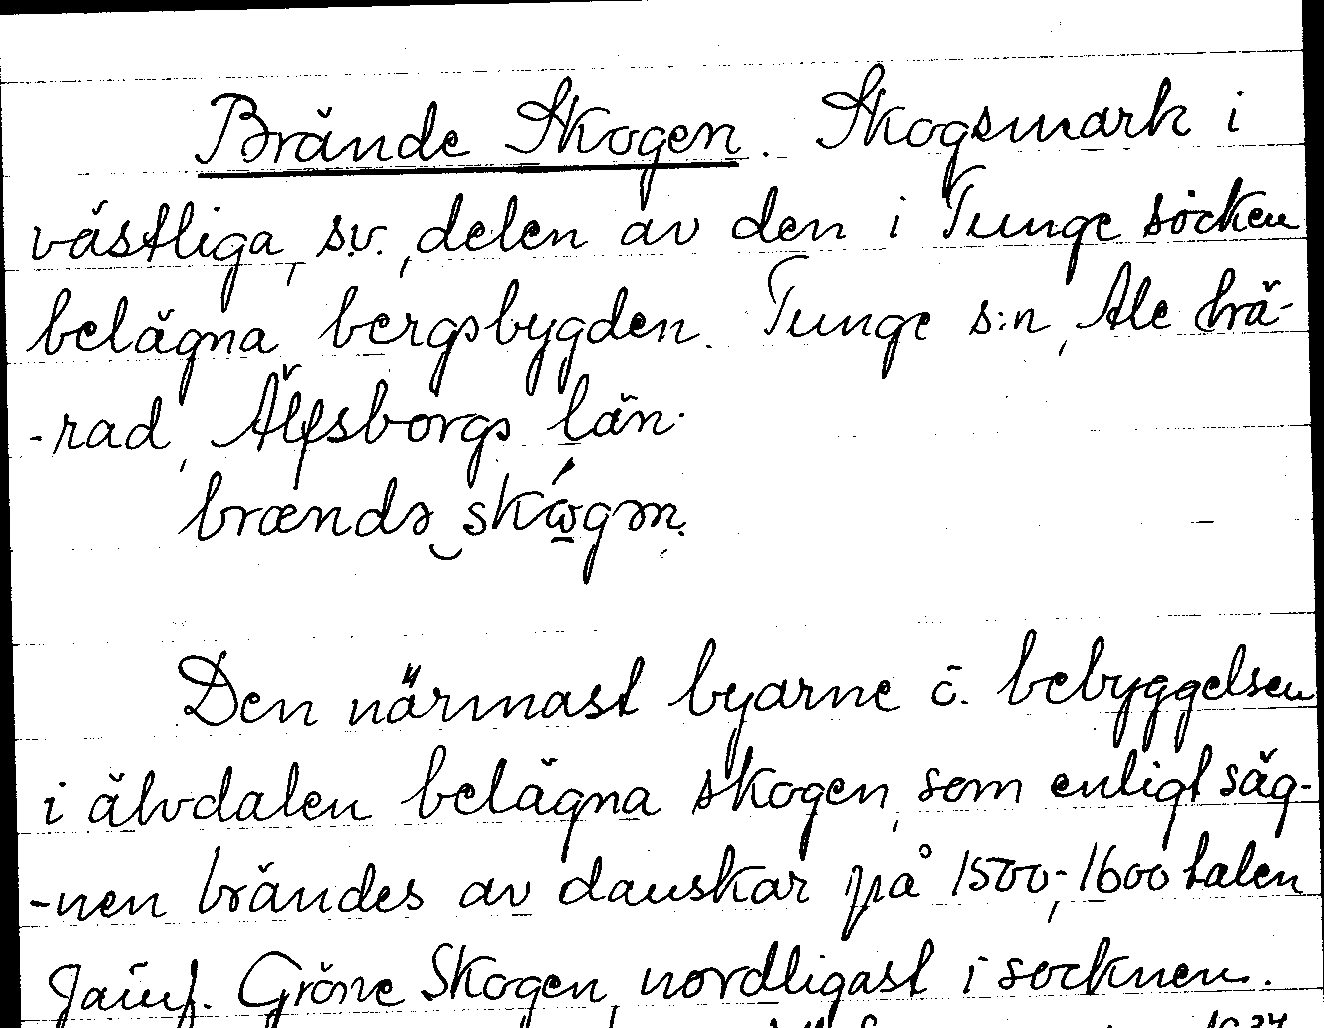 Brände Skogen. Skogsmark i
västliga, sv., delen av den i Tunge socken
belägna bergsbygden. Tunge s:n, Ale hä-
-rad, Älfsborgs län.
brændə skɷ́gən.
Den närmast byarne o. bebyggelsen
i älvdalen belägna skogen, som enligt säg-
-nen brändes av danskar på 1500,-1600 talen
Jämf. Gröne Skogen, nordligast i socknen.
1934